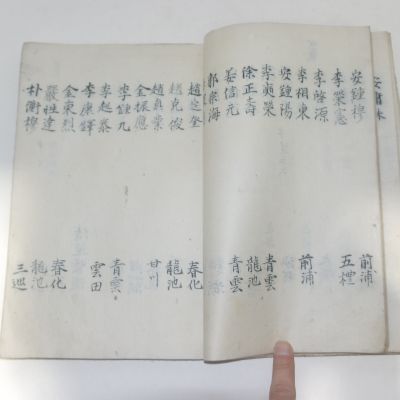 安鍾穆 前浦
李榮憲 五禮
李啓源
李相東 前浦
安鍾陽
李奭榮 青雲
徐正壽 龍池
姜信元 青雲
郭宗海
趙定奎 春化
趙克俊 龍池
趙貞榮 甘川
金振應
李鍾九 青雲
李起泰 雲田
李康鐸
金東烈 春化
嚴柱達 龍池
朴衡穆 三巡